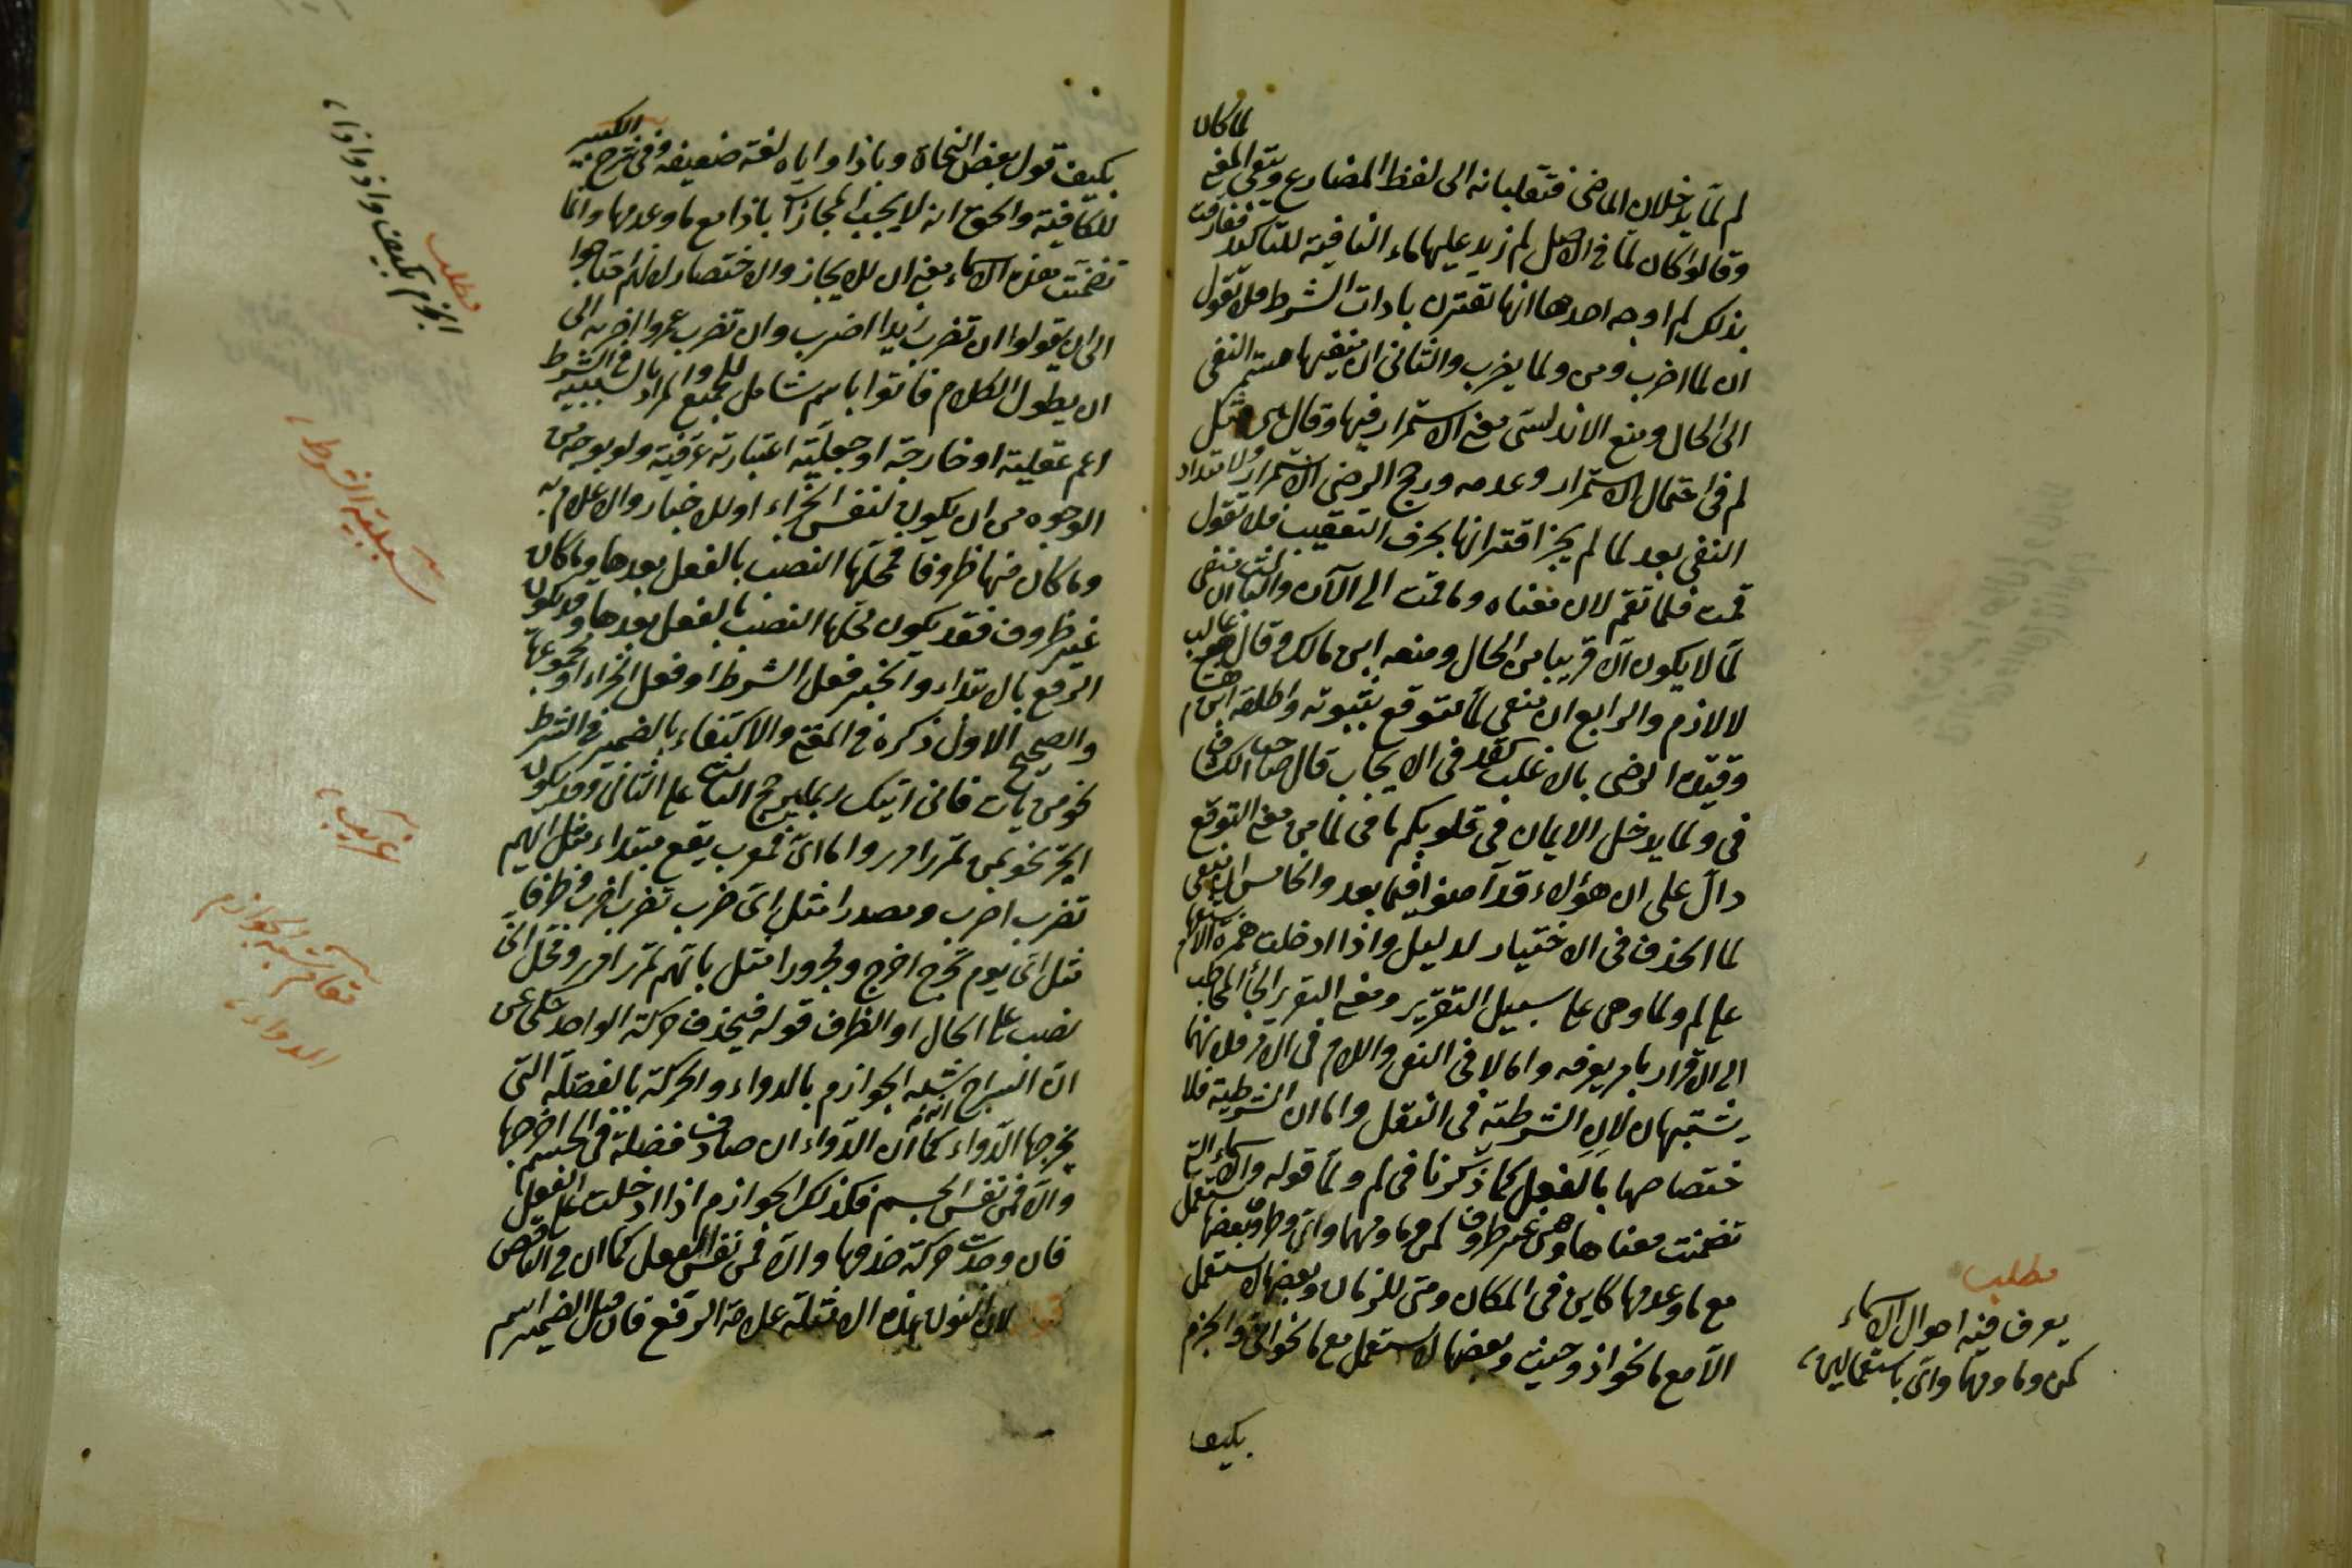 لما كان
لم لما يدخلان الماضى فتقلبانه الى لفظ المضارع ويبقى المعنى
وقالوا كان لما فى الاصل لم زيد عليها ماء النافية للتاكيد ففارقت
بذلك لم اوجه احدها انها لا تقترن بادات الشرط فلا تقول
ان لما اضرب ومن ولما يضرب والثانى ان منفيها مستمر النفى
الى الحال ومنع الاندلسى معنى الاستمرار فيها وقال هى مثل
لم فى احتمال الاستمرار وعدمه ورجح الرضى الاستمرار ولامتداد
النفى بعد لما لم يجز اقترانها بحرف التعقيب فلا تقول
قمت فلما تقم لان معناه وما قمت الى الآن والثالث ان منفى
لما لا يكون الا قريبا من الحال ومنعه ابن مالك وقال هو غالب
لا لازم والرابع ان منفى لما متوقع ثبوته واطلقه ابن هشام
وقيده الرضى بالاغلب كقد فى الايجاب قال صاحب الكشاف
فى ولما يدخل الايمان فى قلوبكم ما فى لما من معنى التوقع
دال على ان هؤلاء قد آمنوا فيما بعد والخامس ان منفى
لما الحذف فى الاختيار لدليل واذا ادخلت همزة الاستفهام
على لم ولما وهى على سبيل التقرير ومعنى التقرير الجأ المخاطب
الى الاقرار بامر يعرفه واما لا فى النهى واللام فى الامر فلانهما
يشتبهان لان الشرطية فى النقل واما ان الشرطية فلا
ختصاصها بالفعل كما ذكرنا فى لم ولما قوله والاسماء التى
تضمنت معناها وهى غير ظروف كمن وما ومهما واى وظروف بعضها يستعمل
مع ما وعدمها كاين فى المكان ومتى للزمان وبعضها لا يستعمل
الا مع ما نحو اذ وحيث وبعضها لا يستعمل مع ما نحو انى والجزم
بكيف
مطلب
يعرف فيه احوال الاسماء
كمن وما ومهما واى باستعمالين
بكيف قول بعض النحاة وباذا واياه لغة ضعيفة وفى شرح الكبير
للكافية والحق انه لا يجب المجازاة باذا مع ما وعدمها وانما
تضمنت هذه الاسماء معنى ان للايجاز والاختصار لانهم احتاجوا
الى ان يقولوا ان تضرب زيدا اضرب وان تضرب عمروا اضربه الى
ان يطول الكلام فاتوا باسم شامل للجميع والمراد بالسببية فى الشرط
اعم عقلية او خارجة او جعلية اعتبارية عرفية ولو بوجه من
الوجوه من ان يكون لنفس الجزاء او للاخبار والاعلام به
وما كان منها ظروفا فمحلها النصب بالفعل بعدها وما كان
غير ظروف فقد يكون محلها النصب بالفعل بعدها وقد يكون
الرفع بالابتداء والخبر فعل الشرط او فعل الجزاء او مجموعها
والصحيح الاول ذكره فى المقنع والاكتفاء بالضمير فى الشرط
نحو من يات فانى اتيك ربما يرجح الثالث على الثانى وقد يكون
الجر نحو بمن تمرر امرر واما اى فمعرب يقع مبتداء مثل ايهم
تضرب اضرب ومصدرا مثل اى ضرب تضرب اضرب وظرفا
مثل اى يوم تخرج اخرج ومجرورا مثل بايهم تمرر امرر ومحل انى
نصب على الحال او الظرف قوله فيحذف حركة الواحد حكى عن
ان السراج شبه الجوازم بالدواء والحركة بالفضلة التى
يخرجها الدواء كما ان الدواء ان صادف فضلة فى الجسم اخرجها
والا فمن نفس الجسم فكذلك الجوازم اذا ادخلت على الفعل
فان وجدت حركة حذفها والا فمن نفس الفعل كما ان فى الناقص
لان النون فى هذه الامثلة علامة الرفع فان قيل الضمير اسم
مطلب
الجزم بكيف واذ واذا
سببية الشرط
غريب
تعلم تشبيه الجوازم
الدواء